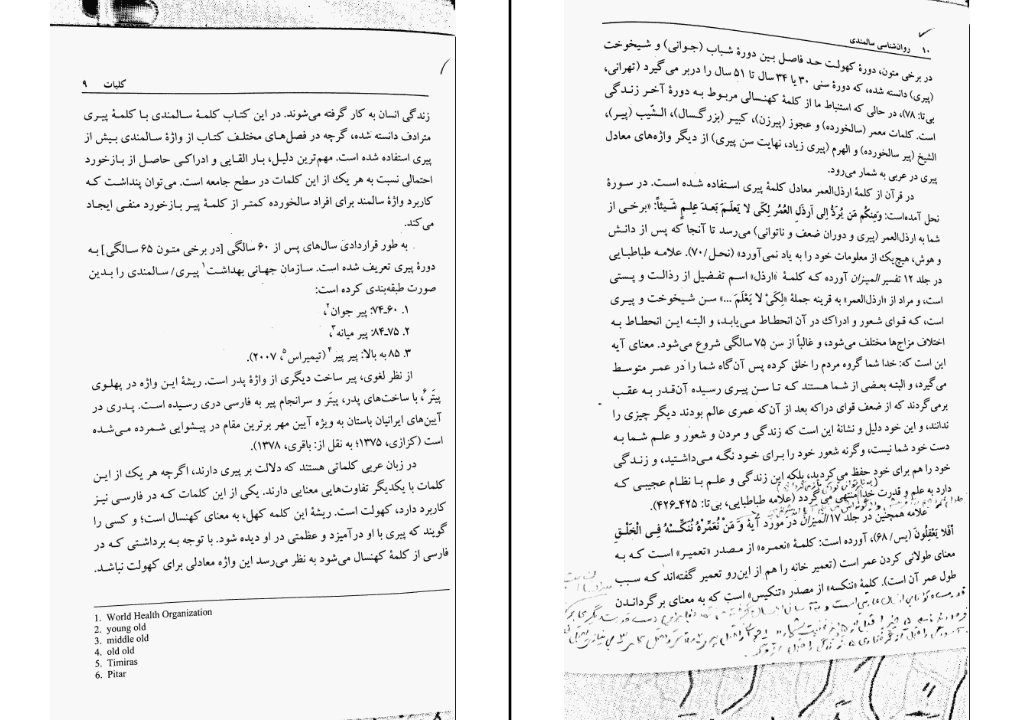 کلیات ۹
زندگی انسان به کار گرفته می‌شوند. در این کتاب کلمهٔ سالمندی با کلمهٔ پیری
مترادف دانسته شده، گرچه در فصل‌های مختلف کتاب از واژهٔ سالمندی بیش از
پیری استفاده شده است. مهم‌ترین دلیل، بار القایی و ادراکی حاصل از بازخورد
احتمالی نسبت به هر یک از این کلمات در سطح جامعه است. می‌توان پنداشت که
کاربرد واژهٔ سالمند برای افراد سالخورده کمتر از کلمهٔ پیر بازخورد منفی ایجاد
می‌کند.
به طور قراردادی سال‌های پس از ۶۰ سالگی [در برخی متون ۶۵ سالگی] به
دورهٔ پیری تعریف شده است. سازمان جهانی بهداشت۱ پیری/ سالمندی را بدین
صورت طبقه‌بندی کرده است:
۱. ۶۰ـ۷۴: پیر جوان۲،
۲. ۷۵ـ۸۴: پیر میانه۳،
۳. ۸۵ به بالا: پیر پیر۴ (تیمیراس۵، ۲۰۰۷).
از نظر لغوی، پیر ساخت دیگری از واژهٔ پدر است. ریشهٔ این واژه در پهلوی
پیتَر۶، با ساخت‌های پدر، پیتَر و سرانجام پیر به فارسی دری رسیده است. پدری در
آیین‌های ایرانیان باستان به ویژه آیین مهر برترین مقام در پیشوایی شمرده می‌شده
است (کزازی، ۱۳۷۵؛ به نقل از: باقری، ۱۳۷۸).
در زبان عربی کلماتی هستند که دلالت بر پیری دارند، اگرچه هر یک از این
کلمات با یکدیگر تفاوت‌هایی معنایی دارند. یکی از این کلمات که در فارسی نیز
کاربرد دارد، کهولت است. ریشهٔ این کلمه کهل، به معنای کهنسال است؛ و کسی را
گویند که پیری با او درآمیزد و عظمتی در او دیده شود. با توجه به برداشتی که در
فارسی از کلمهٔ کهنسال می‌شود به نظر می‌رسد این واژه معادلی برای کهولت نباشد.
1. World Health Organization
2. young old
3. middle old
4. old old
5. Timiras
6. Pitar
۱۰ روان‌شناسی سالمندی
در برخی متون، دورهٔ کهولت حد فاصل بین دورهٔ شباب (جوانی) و شیخوخت
(پیری) دانسته شده، که دورهٔ سنی ۳۰ یا ۳۴ سال تا ۵۱ سال را دربر می‌گیرد (تهرانی،
بی‌تا: ۷۸)، در حالی که استنباط ما از کلمهٔ کهنسالی مربوط به دورهٔ آخر زندگی
است. کلمات معمر (سالخورده) و عجوز (پیرزن)، کبیر (بزرگسال)، الشّیب (پیر)،
الشیخ (پیر سالخورده) و الهرم (پیری زیاد، نهایت سن پیری) از دیگر واژه‌های معادل
پیری در عربی به شمار می‌رود.
در قرآن از کلمهٔ ارذل‌العمر معادل کلمهٔ پیری استفاده شده است. در سورهٔ
نحل آمده‌است: وَمِنکُم مَن یُرَدُّ اِلی اَرذَلِ العُمُر لِکَی لا یَعلَمَ بَعدَ عِلمٍ شَیئاً: «برخی از
شما به ارذل‌العمر (پیری و دوران ضعف و ناتوانی) می‌رسد تا آنجا که پس از دانش
و هوش، هیچ‌یک از معلومات خود را به یاد نمی‌آورد» (نحل/ ۷۰). علامه طباطبایی
در جلد ۱۲ تفسیر المیزان آورده که کلمهٔ «ارذل» اسم تفضیل از رذالت و پستی
است، و مراد از «ارذل‌العمر» به قرینه جملهٔ «لِکَیْ لا یَعْلَمَ ...» سن شیخوخت و پیری
است، که قوای شعور و ادراک در آن انحطاط می‌یابد، و البته این انحطاط به
اختلاف مزاج‌ها مختلف می‌شود، و غالباً از سن ۷۵ سالگی شروع می‌شود. معنای آیه
این است که: خدا شما گروه مردم را خلق کرده پس آن‌گاه شما را در عمر متوسط
می‌گیرد، و البته بعضی از شما هستند که تا سن پیری رسیده آن‌قدر به عقب
برمی‌گردند که از ضعف قوای دراکه بعد از آن‌که عمری عالم بودند دیگر چیزی را
ندانند، و این خود دلیل و نشانهٔ این است که زندگی و مردن و شعور و علم شما به
دست خود شما نیست، وگرنه شعور خود را برای خود نگه می‌داشتید، و زندگی
خود را هم برای خود حفظ می‌کردید، بلکه این زندگی و علم با نظام عجیبی که
دارد به علم و قدرت خدا منتهی می‌گردد (علامه طباطبایی، بی‌تا: ۴۲۵ـ۴۲۶).
علامه همچنین در جلد ۱۷ المیزان در مورد آیهٔ وَ مَنْ نُعَمِّرْهُ نُنَکِّسْهُ فِی الْخَلْقِ
اَفَلا یَعْقِلُونَ (یس/ ۶۸)، آورده است: کلمهٔ «نعمره» از مصدر «تعمیر» است که به
معنای طولانی کردن عمر است (تعمیر خانه را هم از این‌رو تعمیر گفته‌اند که سبب
طول عمر آن است). کلمهٔ «ننکسه» از مصدر «تنکیس» است که به معنای برگرداندن